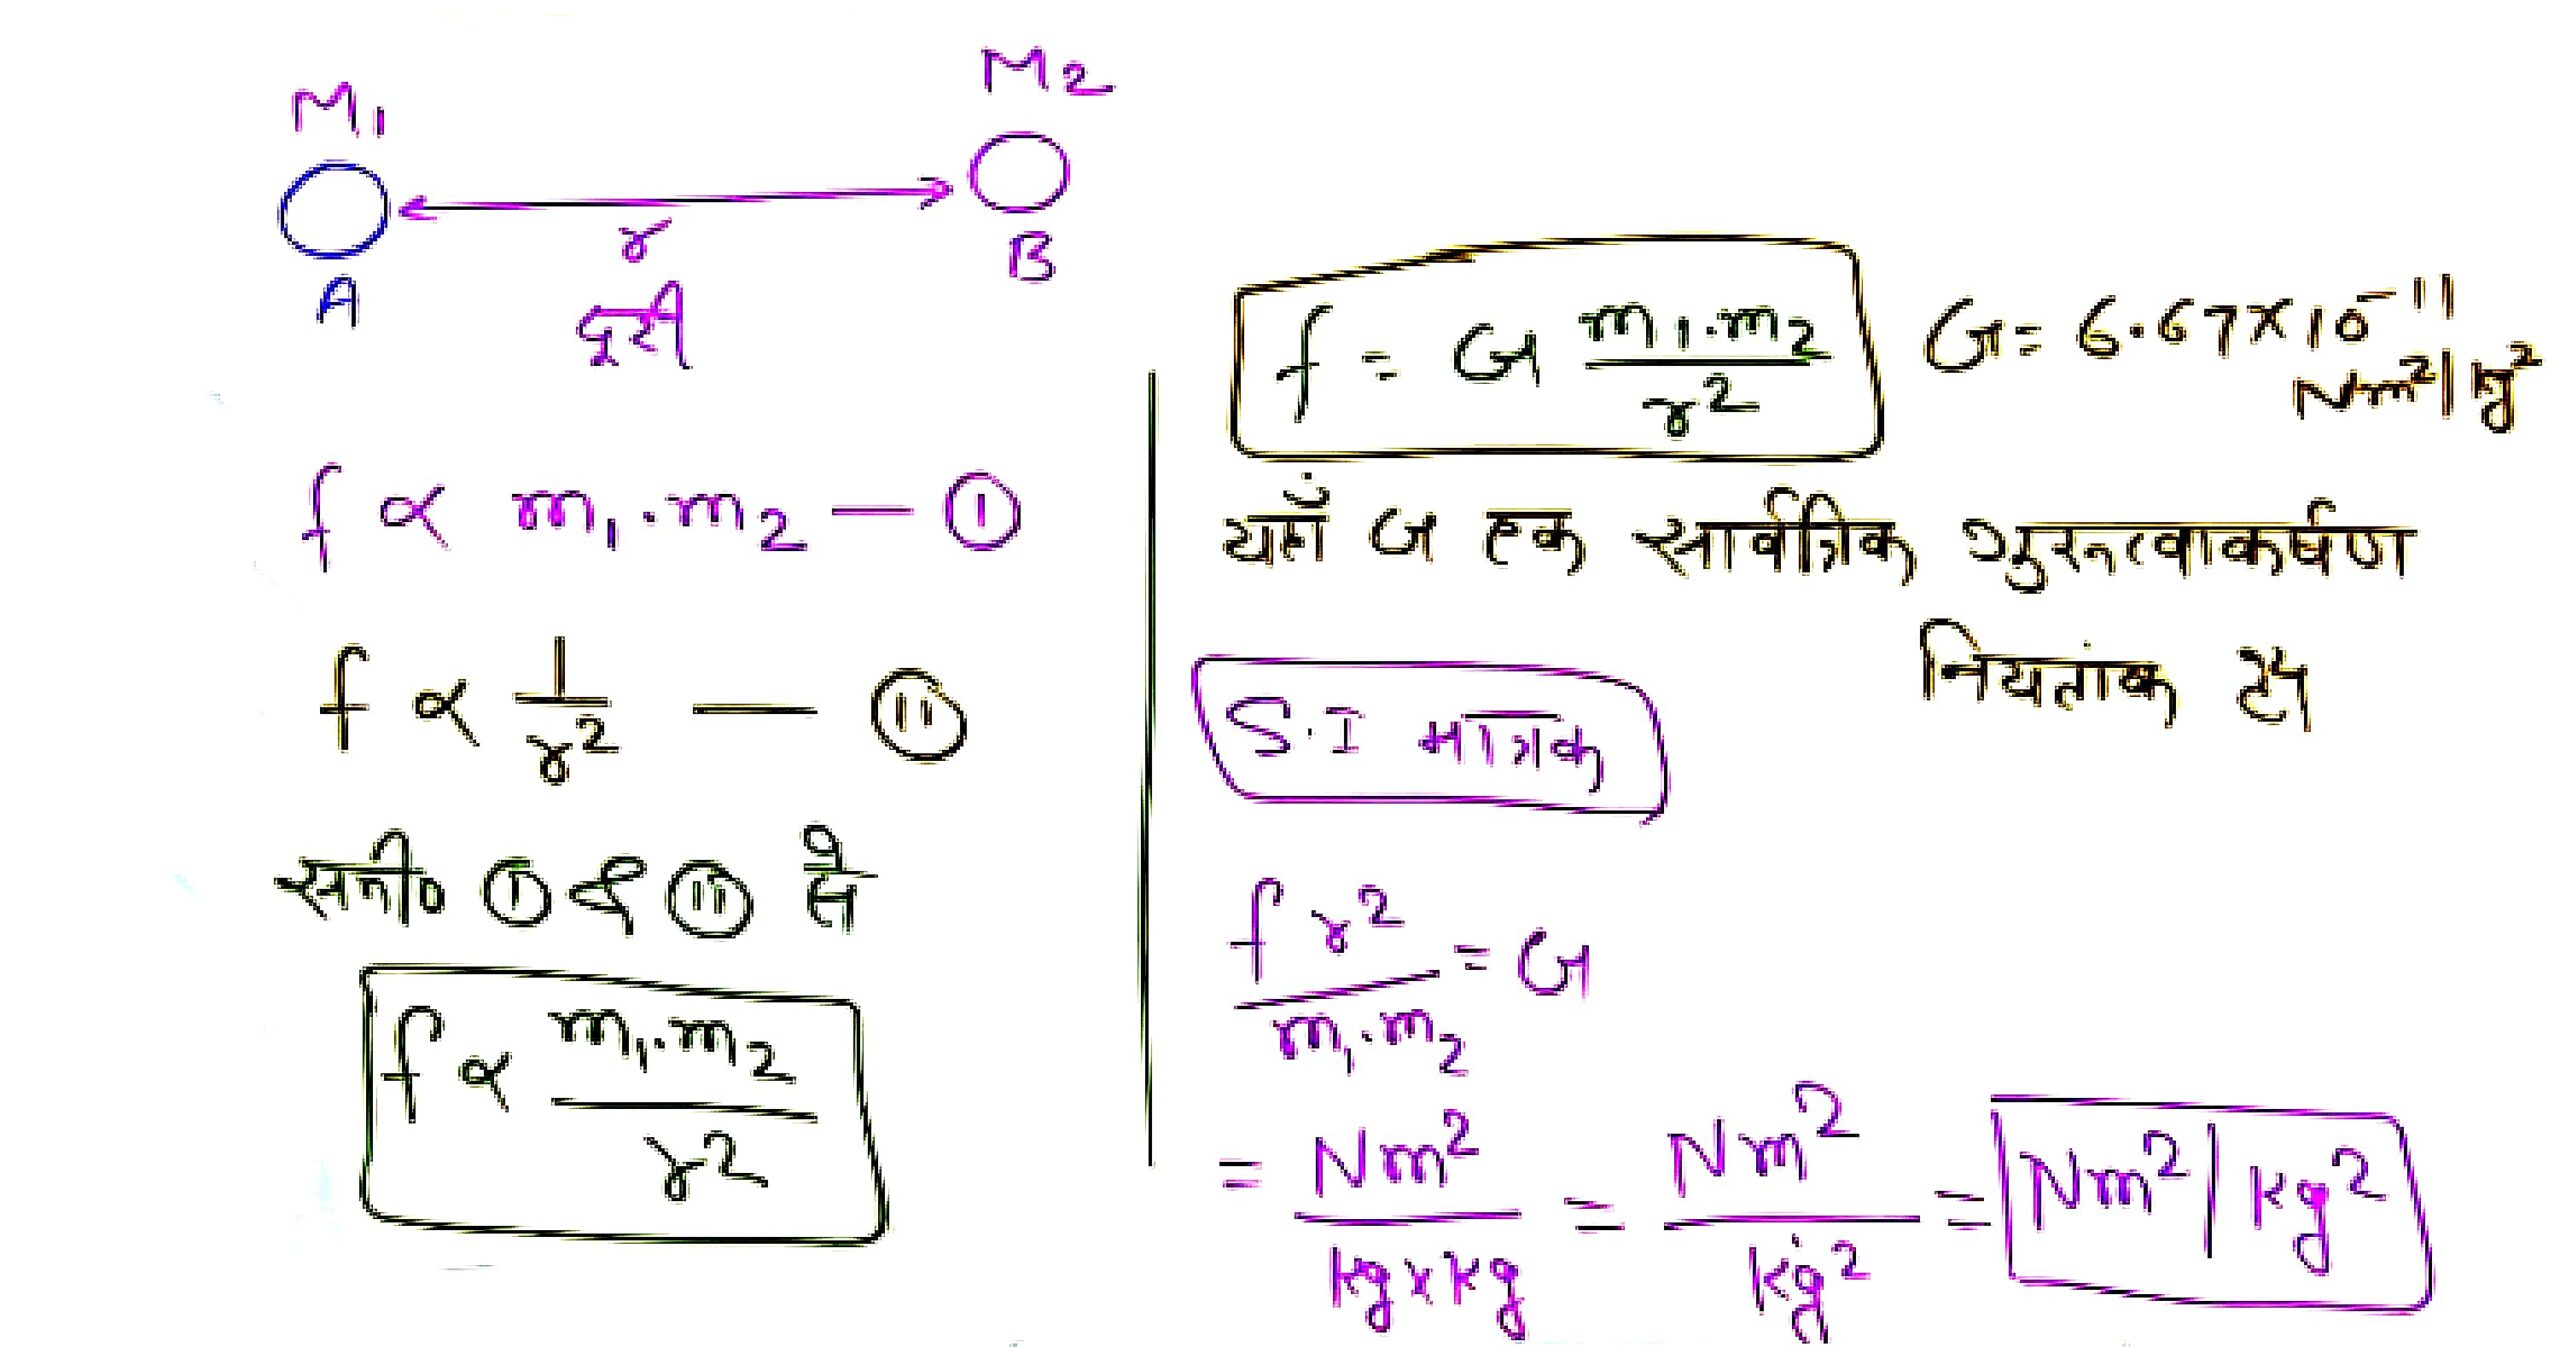 M₁
M₂
A
B
r
दूरी
f ∝ m₁.m₂ — ①
f ∝ 1/r² — ⑪
समी० ① व ⑪ से
f ∝ m₁.m₂/r²
f = G m₁.m₂/r²
G = 6.67×10⁻¹¹
Nm²|kg²
G एक सार्वत्रिक गुरूत्वाकर्षण
नियतांक है
S.I मात्रक
f r²/m₁.m₂ = G
= Nm²/kg×kg = Nm²/kg² = Nm²|kg²